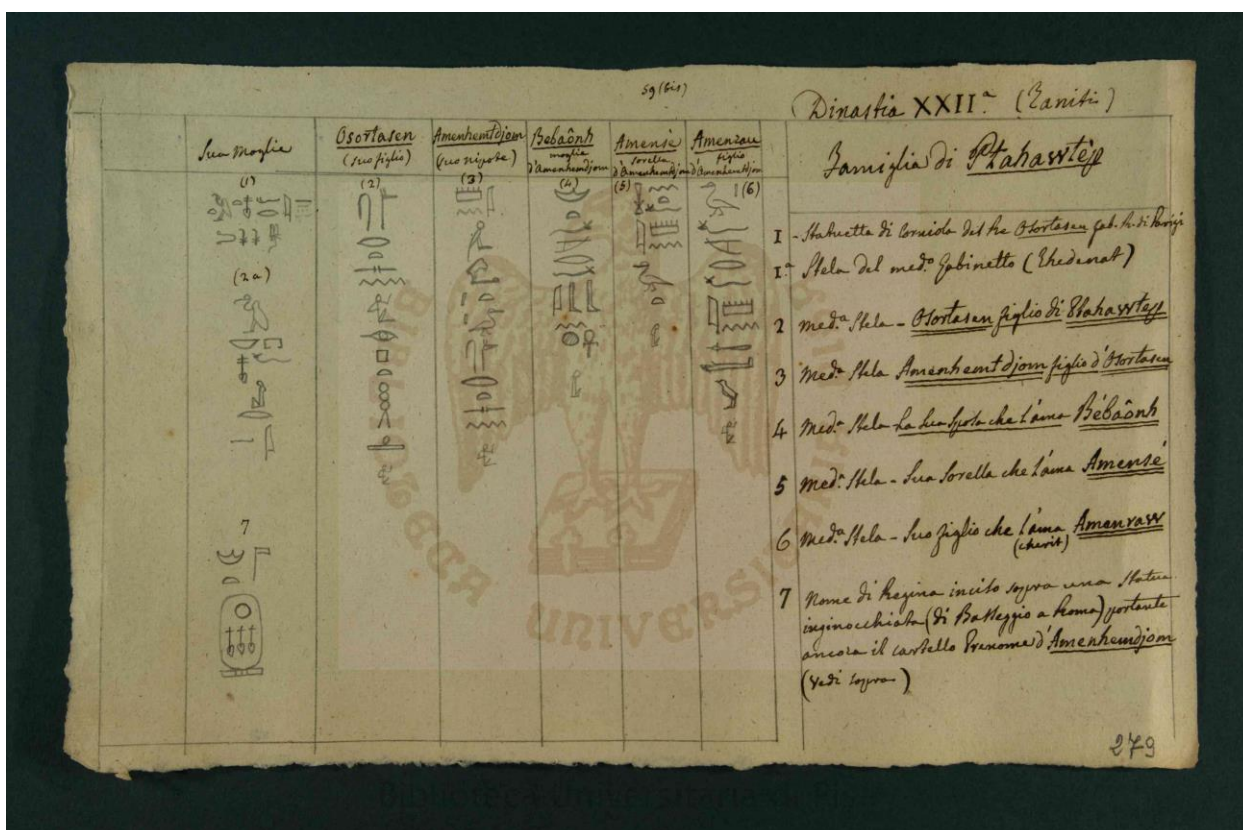 59 (bis)
Dinastia XXII.a (Taniti)
Famiglia di Ptahawtép
Sua Moglie
Osortasen
(suo figlio)
Amenhemtdjom
(suo nipote)
Bebaônh
moglie
d'Amenhemdjom
Amensè
sorella
d'Amenhemdjom
Amenrau
figlio
d'Amenhemdjom
(1)
(2)
(3)
(4)
(5)
(6)
(2a)
7
1 - Statuetta di Corniola del Re Osortasen gab. R. di Parigi
1.a Stela del med.o Gabinetto (Thedenat)
2 med.a Stela - Osortasen figlio di Ptahawtep
3 Med.a Stela Amenhemtdjom figlio d'Osortasen
4 Med.a Stela La sua Sposa che l'ama Bébaônh
5 Med.a Stela - Sua Sorella che l'ama Amensé
6 Med.a Stela - Suo figlio che l'ama Amenraw
(cherit)
7 Nome di Regina inciso sopra una Statua
inginocchiata (di Basseggio a Roma) portante
ancora il cartello Prenome d'Amenhemdjom
(Vedi sopra)
279
BIBLIOTECA UNIVERSITARIA
Biblioteca Universitaria di Pisa